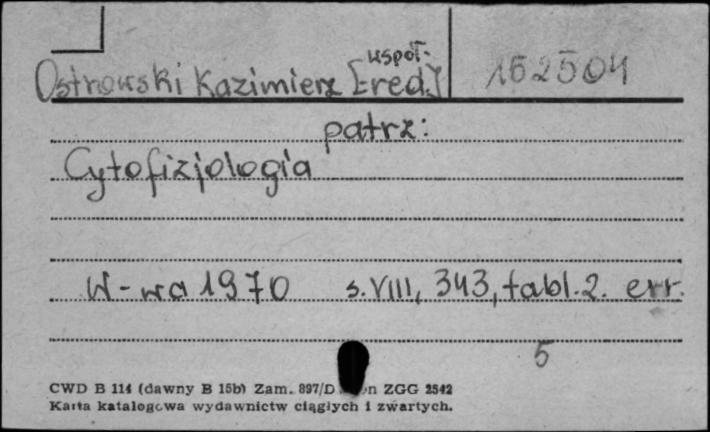 współ.
Ostrowski Kazimierz [red.] 152504
patrz:
Cytofizjologia
W-wa 1970 s. VIII, 343, tabl. 2. err.
5
CWD B 114 (dawny B 15b) Zam. 897/D ZGG 2542
Karta katalogowa wydawnictw ciągłych i zwartych.